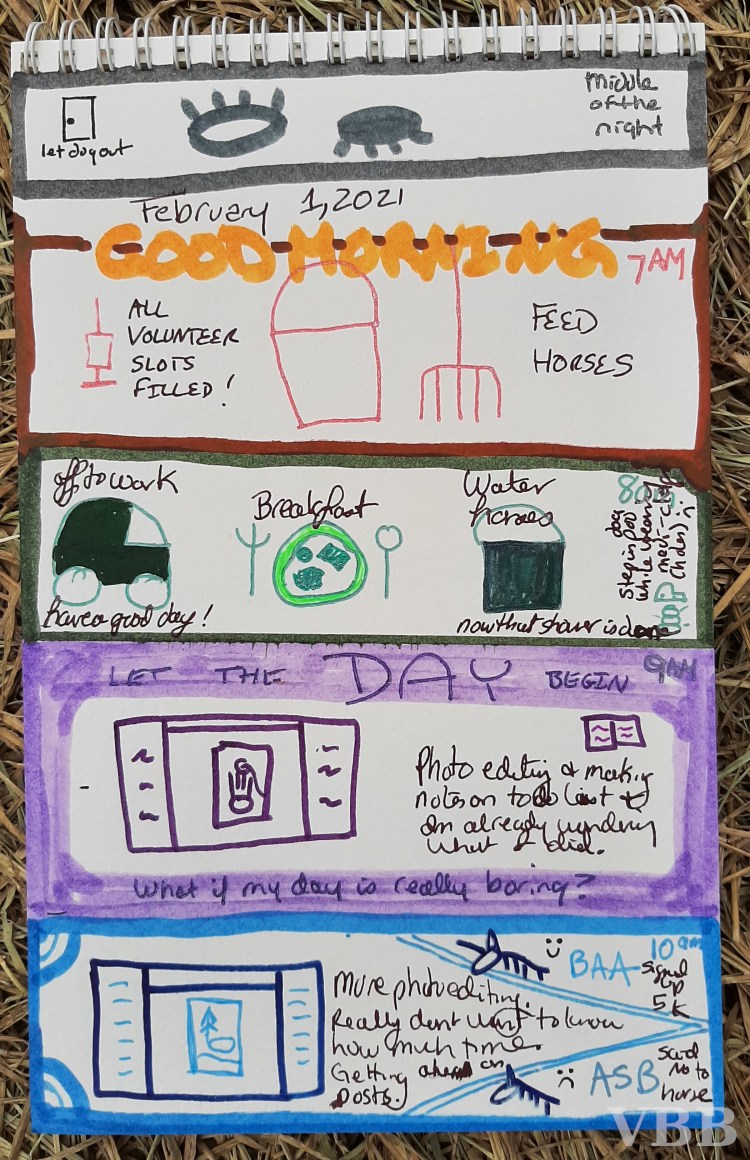 middle
of the
night
let dog out
February 1, 2021
GOOD MORNING
7AM
ALL
VOLUNTEER
SLOTS
FILLED!
FEED
HORSES
off to work
have a good day!
Breakfast
Water
horses
now that shower is done
8am
step in poo
while
LET THE DAY BEGIN
9AM
Photo editing & making
notes on to do list &
am already wondering
what I did.
What if my day is really boring?
More photo editing.
Really dont want to know
how much time.
Getting ahead on
posts.
BAA
10am
signed
up
5K
ASB
said
no to
horse
VBB